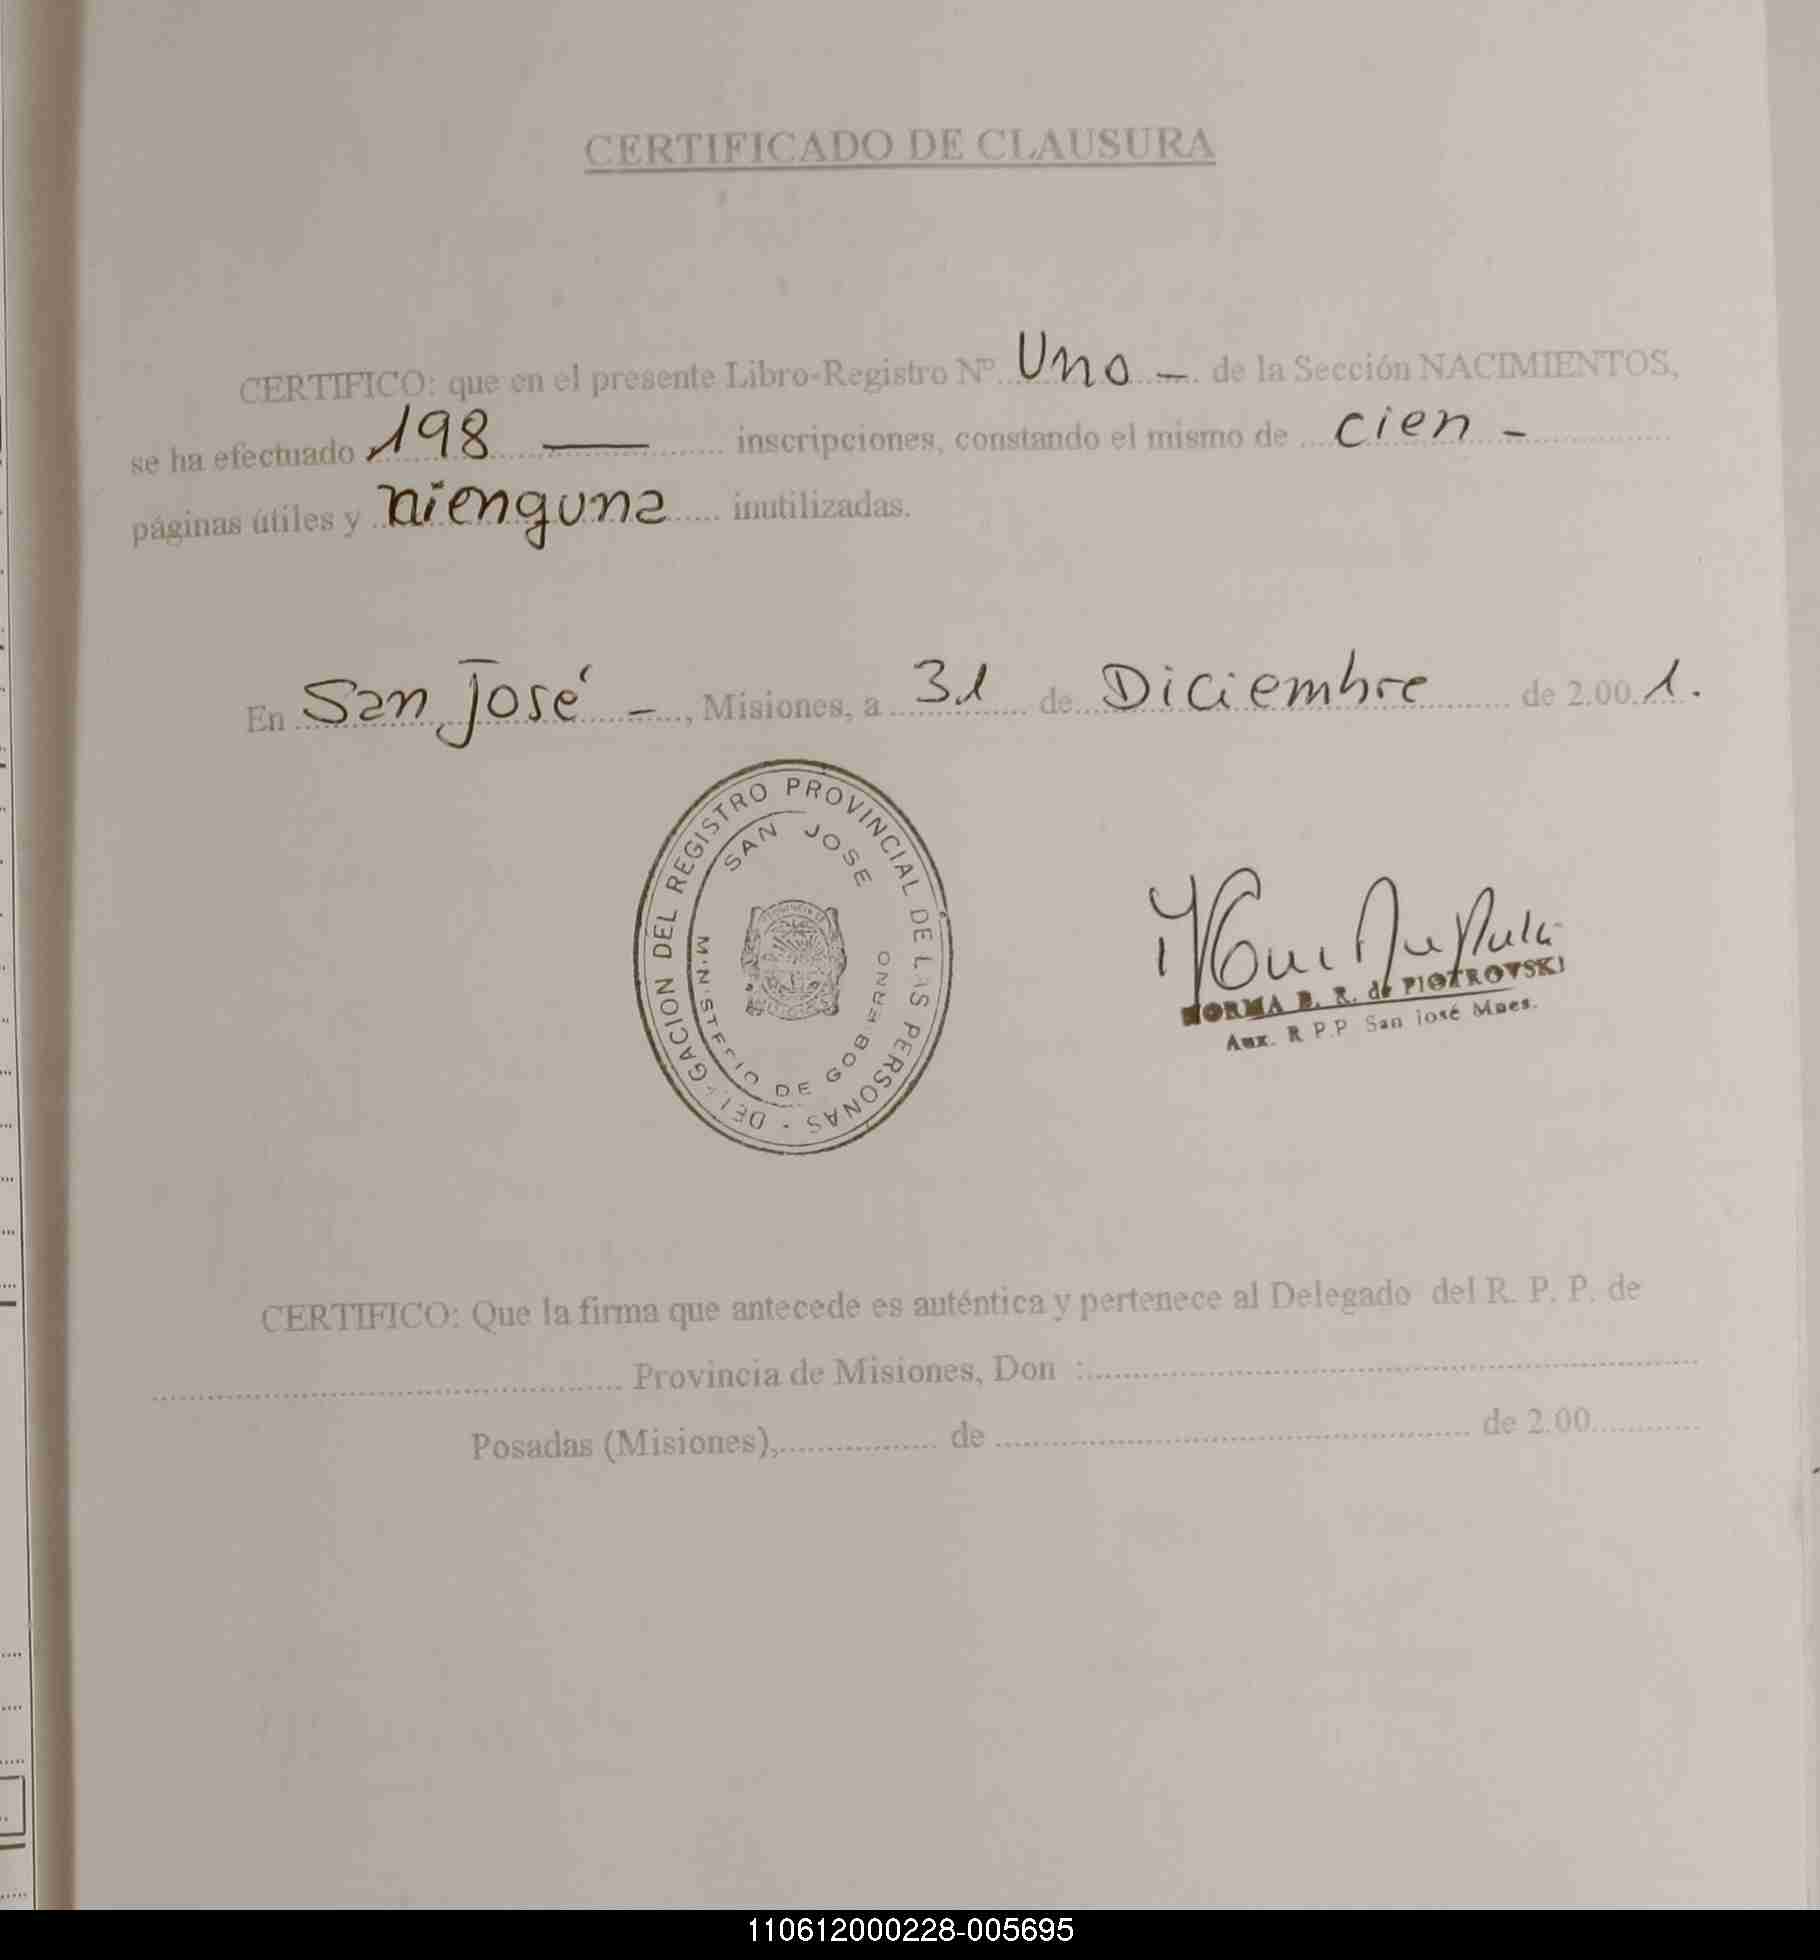 CERTIFICADO DE CLAUSURA
CERTIFICO: que en el presente Libro-Registro Nº Uno - de la Sección NACIMIENTOS,
se ha efectuado 198 — inscripciones, constando el mismo de cien -
páginas útiles y nienguna inutilizadas.
En San José -, Misiones, a 31 de Diciembre de 2.00 1.
DELEGACION DEL REGISTRO PROVINCIAL DE LAS PERSONAS
SAN JOSE
MINISTERIO DE GOBIERNO
NORMA B. R. de PIOTROVSKI
Aux. R P.P San José Mnes.
CERTIFICO: Que la firma que antecede es auténtica y pertenece al Delegado del R. P. P. de
Provincia de Misiones, Don :
Posadas (Misiones), de de 2.00
110612000228-005695